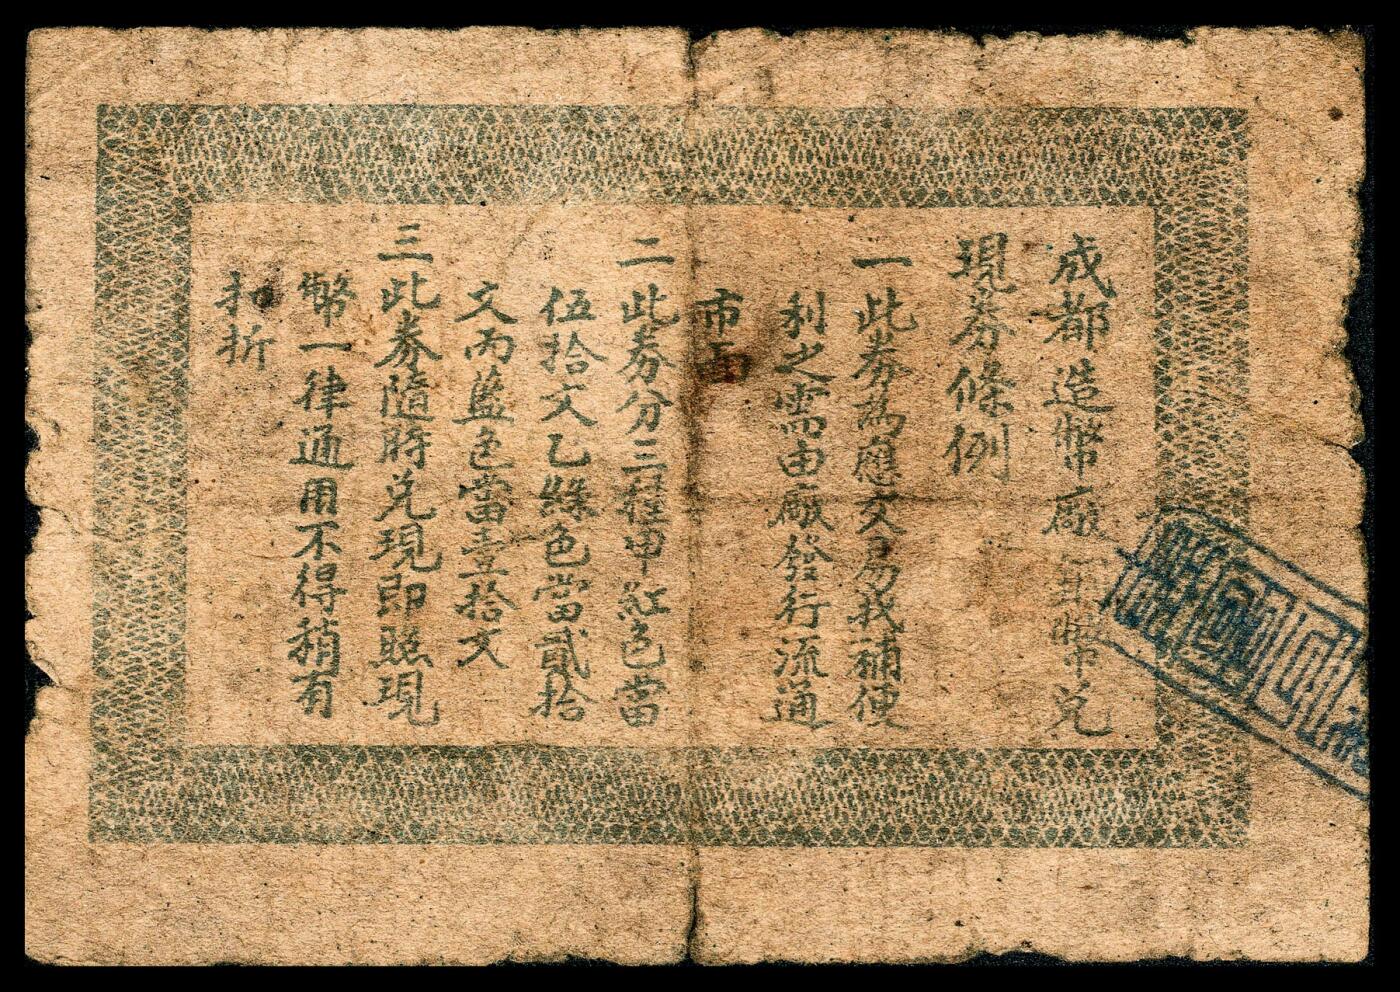 成都造幣廠製幣兌
現券條例
一此券為應交易找補便
利之需由廠發行流通
市面
二此券分三種甲紅色當
伍拾文乙綠色當貳拾
文丙藍色當壹拾文
三此券隨時兌現即照現
幣一律通用不得稍有
扣折